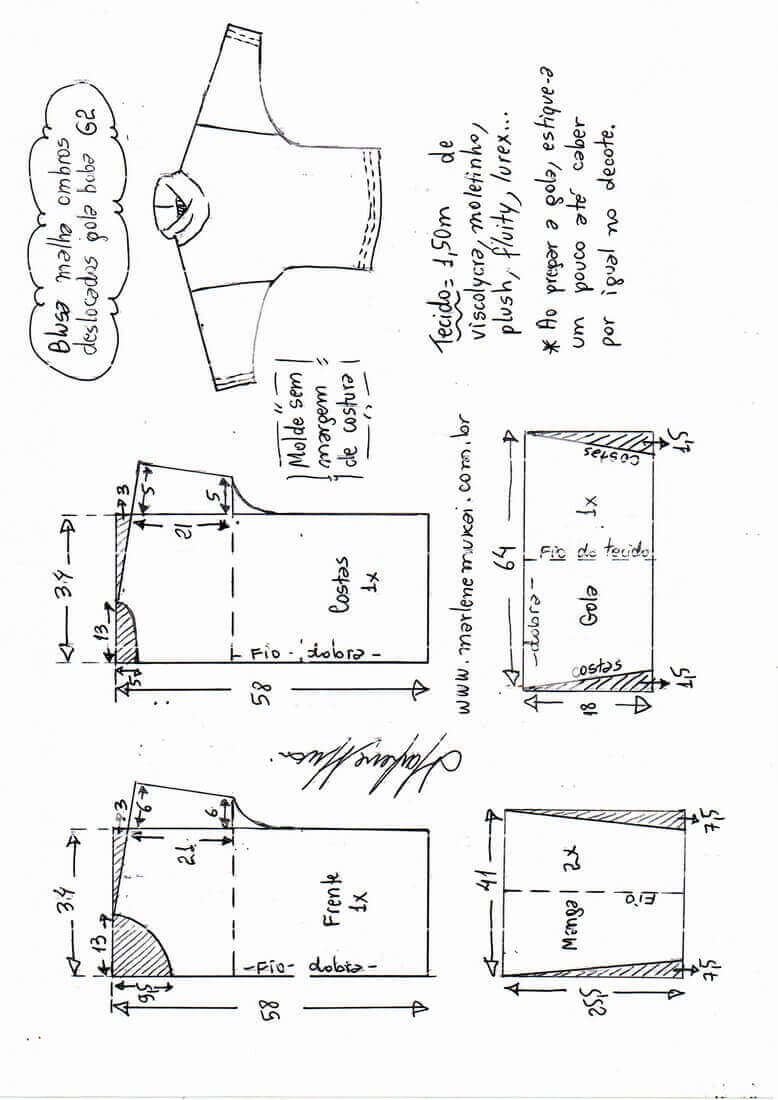 Blusa malha ombros
deslocados gola boba G2
Tecido = 1,50m de
viscolycra, moletinho,
plush, fluity, lurex...
* Ao pregar a gola, estique-a
um pouco até caber
por igual no decote.
Molde sem
margem
de costura
34
13
3
5
5
21
5
58
Costas
1x
- Fio - dobra -
www.marlenemukai.com.br
64
18
- dobra -
Fio do tecido
Gola 1x
costas
costas
1,5
1,5
34
13
3
6
6
21
9,5
58
Frente
1x
- Fio - dobra -
41
25,5
Manga 2x
Fio
7,5
7,5